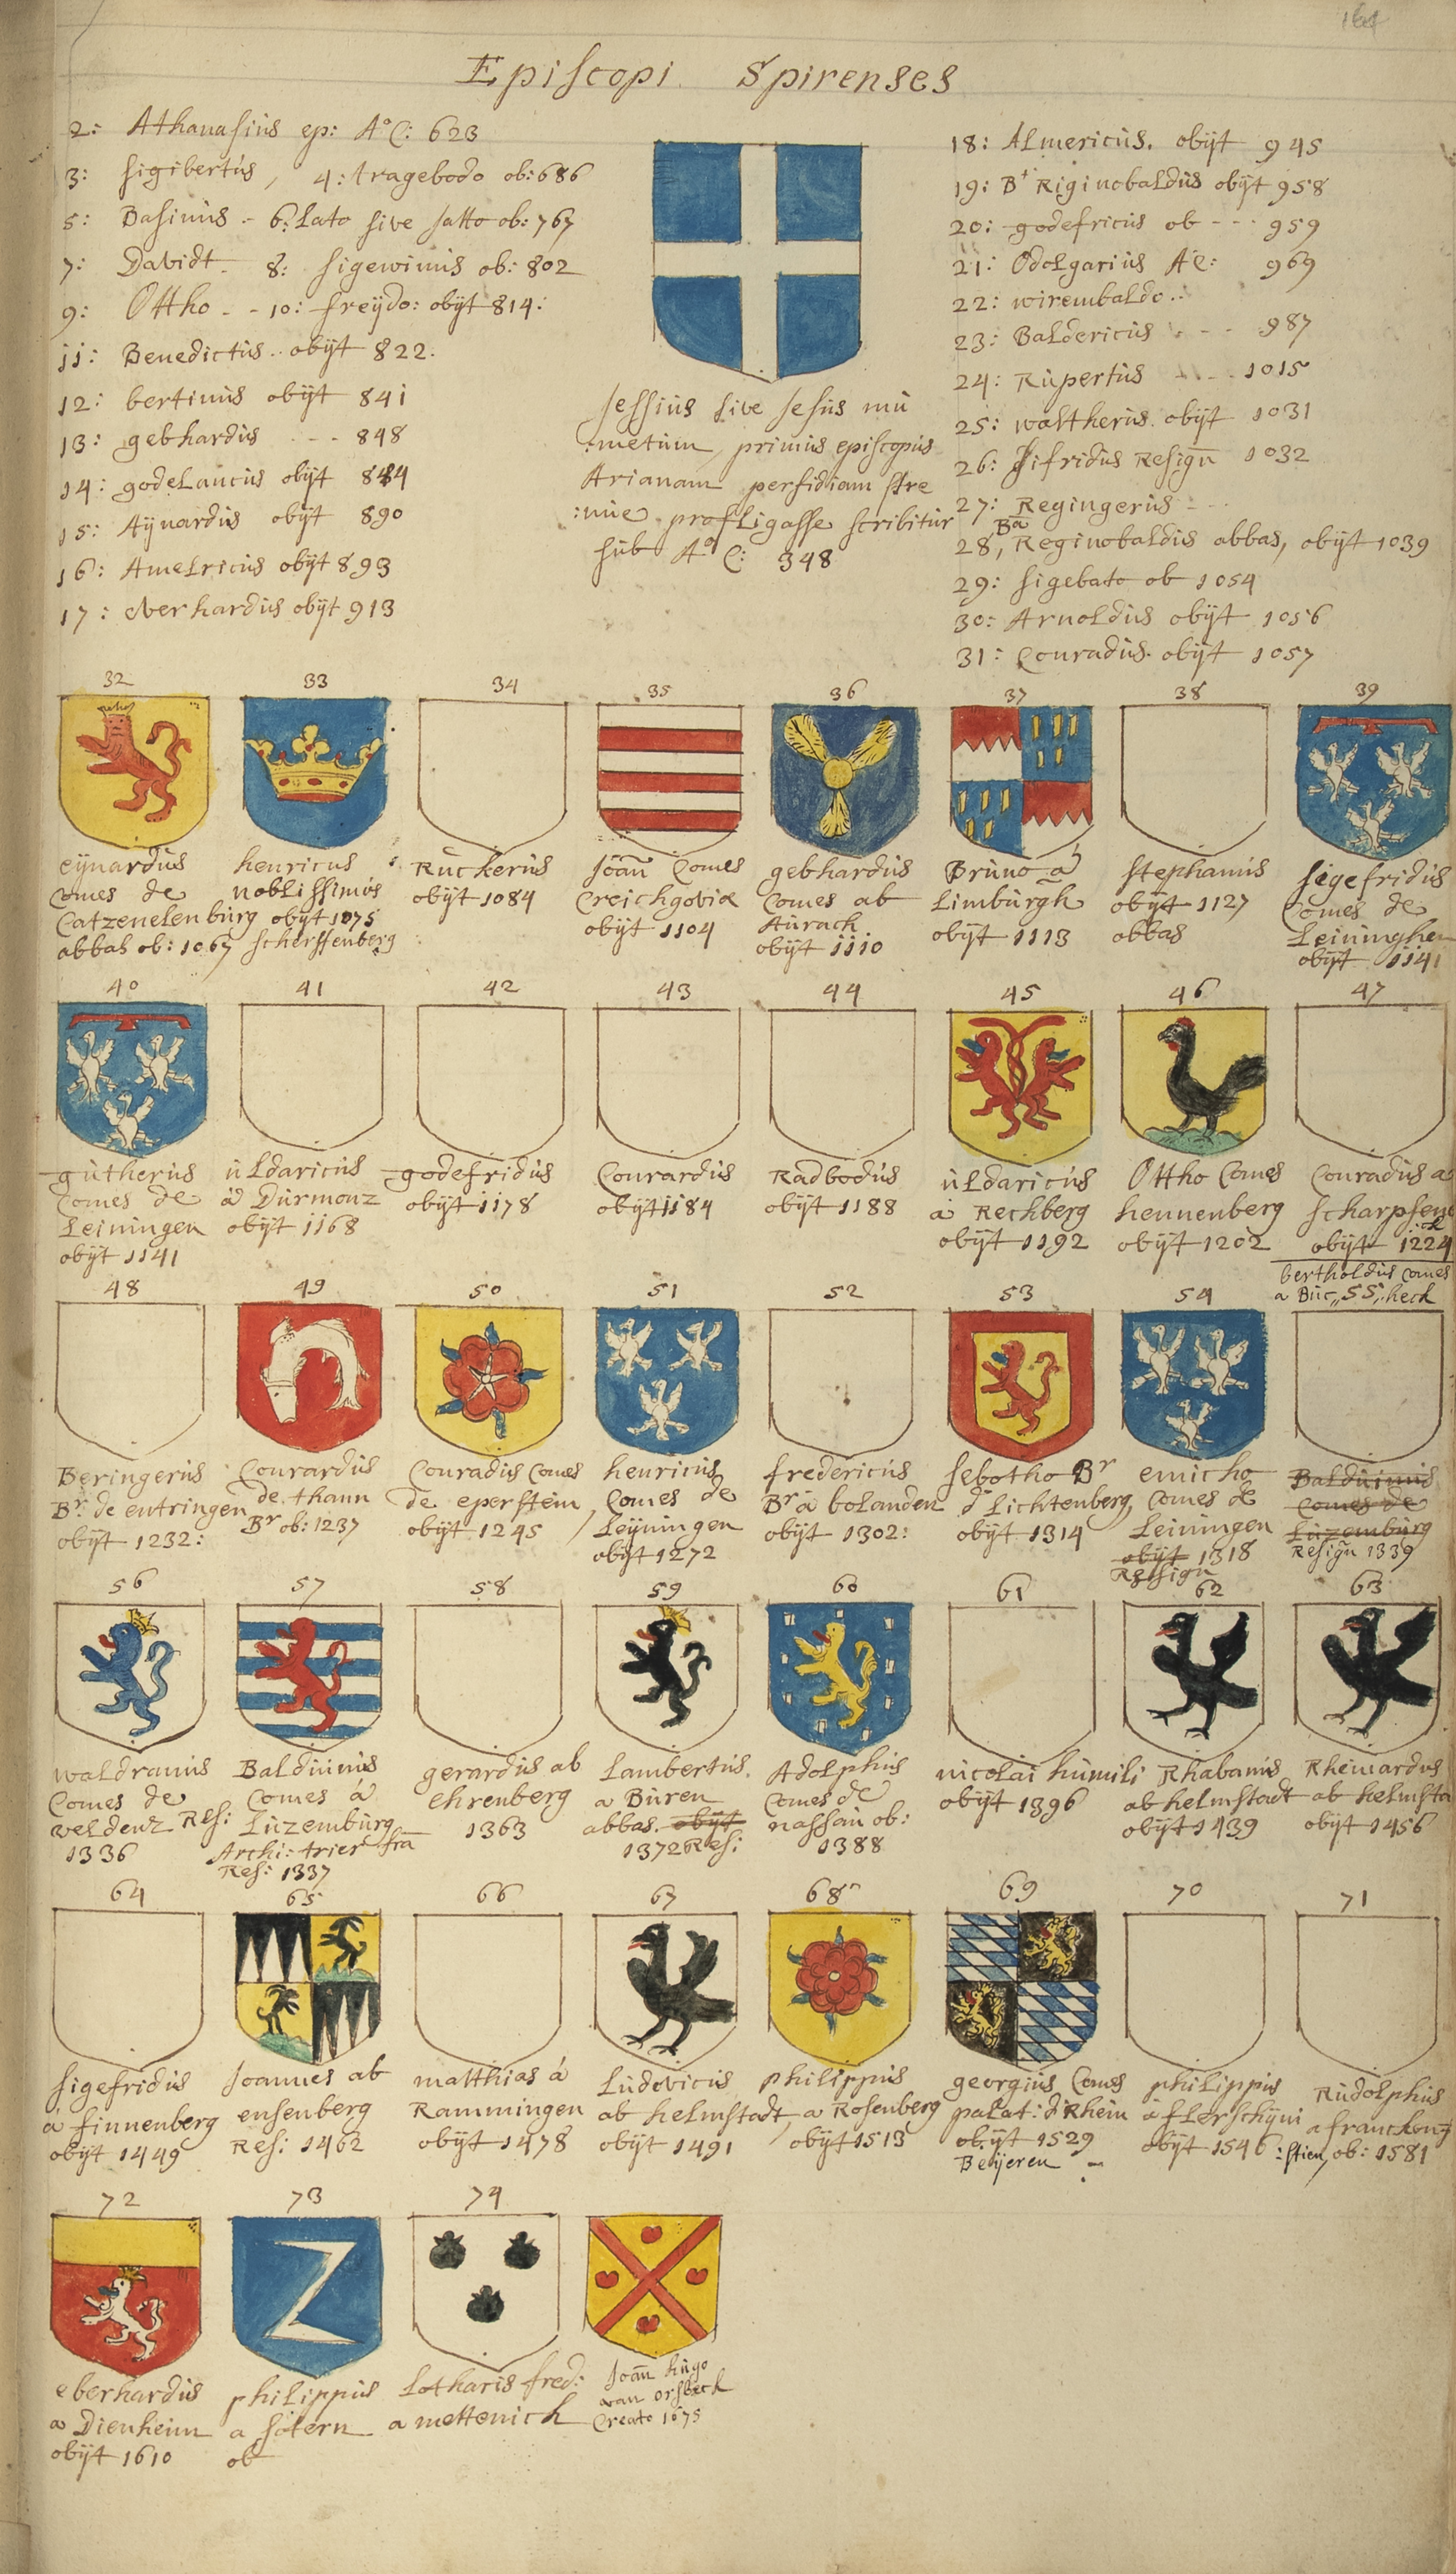 164
Episcopi Spirenses
2: Athanasius ep: A° C: 623
3: Sigibertus, 4: tragebodo ob: 686
5: Basinus - 6: Lato sive Jatto ob: 767
7: Davidt - 8: Sigewinus ob: 802
9: Ottho - - 10: freÿdo: obÿt 814:
11: Benedictus .. obÿt 822.
12: bertinus obÿt 841
13: gebhardus - - - 848
14: godelancus obÿt
15: Aÿnardus obÿt 890
16: Amelricus obÿt 893
17: everhardus obÿt 913
Jessius sive Jesus mu
:metum, primus episcopus
Arianam perfidiam stre
:nue profligasse scribitur
sub A° C: 348
18: Almericus. obÿt 945
19: Bt Riginobaldus obÿt 958
20: godefricus ob - - - 959
21: Odolgarius A° C: 969
22: wirembaldo ..
23: Baldericus - - - 987
24: Rupertus - - - 1015
25: waltherus. obÿt 1031
26: Sifridus Resign̄ 1032
27: Regingerus - - -
28, Ba Reginobaldis abbas, obÿt 1039
29: Sigebato ob 1054
30: Arnoldus obÿt 1056
31: Conradus. obÿt 1057
32 33 34 35 36 37 38 39
eÿnardus
Comes de
Catzenelenburg
abbas ob: 1067
henricus
noblissimus
obÿt 1075
scherffenberg
Ruckerus
obÿt 1084
Joan̄ Comes
Creichgovia
obÿt 1104
gebhardus
Comes ab
Aurach
obÿt 1110
Bruno à
Limburgh
obÿt 1113
Stephanus
obÿt 1127
abbas
Sigefridus
Comes de
Leininghen
obÿt 1141
40 41 42 43 44 45 46 47
gutherus
Comes de
Leiningen
obÿt 1141
uldaricus
à Durmonz
obÿt 1168
godefridus
obÿt 1178
Conrardus
obÿt 1184
Radbodus
obÿt 1188
uldaricus
à Rechberg
obÿt 1192
Ottho Comes
hennenberg
obÿt 1202
Conradus a
scharpfene
ck
obÿt 1224
bertholdus Comes
a Buc,, 55,, heck
48 49 50 51 52 53 54
Beringerus
Br. de entringen
obÿt 1232:
Conrardus
de thann
Br ob: 1237
Conradus Comes
de eperstein
obÿt 1245
henricus
Comes de
Leÿningen
obÿt 1272
fredericus
Br à bolanden
obÿt 1302:
Sebotho Br
d' Lichtenberg
obÿt 1314
emicho
Comes de
Leiningen
obÿt 1318
Ressign
Balduinus
Comes de
Luzemburg
Resign̄ 1339
56 57 58 59 60 61 62 63
waldramus
Comes de
veldenz Res:
1336
Balduinus
Comes à
Luzemburg
Archi: trier fra
Res: 1337
gerardus ab
ehrenberg
1363
Lambertus.
a Buren
abbas. obÿt
1372 Res:
Adolphus
Comes de
nassau ob:
1388
nicolai humili
obÿt 1396
Rhabanus
ab helmstadt
obÿt 1439
Rheinardus
ab helmsta
obÿt 1456
64 65 66 67 68 69 70 71
sigefridus
à finnenberg
obÿt 1449
Joannes ab
ensenberg
Res: 1462
matthias à
Rammingen
obÿt 1478
Ludovicus
ab helmstadt
obÿt 1491
philippus
a Rosenberg
obÿt 1513
georgius Comes
palat: d Rhein
obÿt 1529
Beÿeren
philippus
à flerschÿm
obÿt 1546
Rudolphus
a franckeng
:stien, ob: 1581
72 73 74
eberhardus
a Dienheim
obÿt 1610
philippus
a Sotern
ob
Lotharis fred:
a mettenich
Joan̄ hugo
van orsbeck
Creato 1675